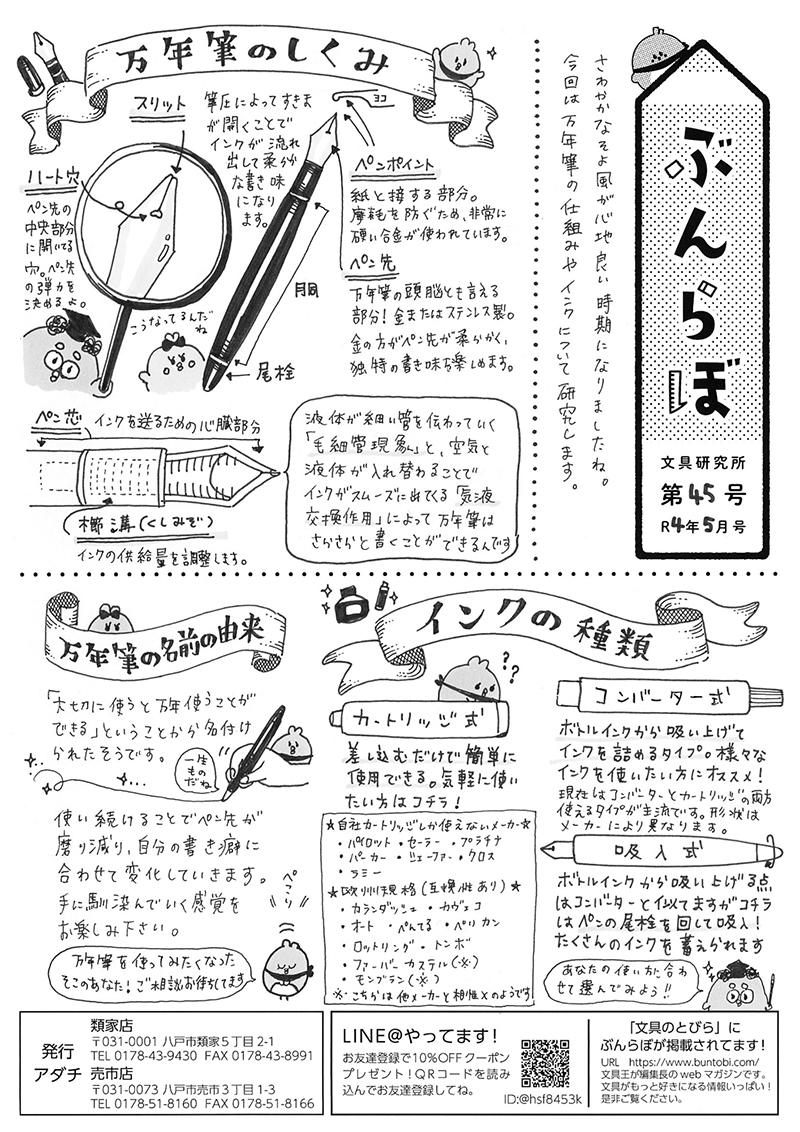 ぶんらぼ
文具研究所
第45号
R4年5月号
さわやかなそよ風が心地良い時期になりましたね。
今回は万年筆の仕組みやインクについて研究します。
万年筆のしくみ
スリット
筆圧によってすきま
が開くことで
インクが流れ
出して柔らか
な書き味
になり
ます。
ヨコ
ハート穴
ペン先の
中央部分
に開いてる
穴。ペン先
の弾力を
決めるよ。
こうなってるんだ
ね
ペンポイント
紙と接する部分。
摩耗を防ぐため、非常に
硬い合金が使われています。
ペン先
万年筆の頭脳とも言える
部分！金またはステンレス製。
金の方がペン先が柔らかく、
独特の書き味も楽しめます。
胴
尾栓
ペン芯
インクを送るための心臓部分
櫛溝(くしみぞ)
インクの供給量を調整します。
液体が細い管を伝わっていく
「毛細管現象」と、空気と
液体が入れ替わることで
インクがスムーズに出てくる「気液
交換作用」によって万年筆は
さらさらと書くことができるんです
万年筆の名前の由来
「大切に使うと万年使うことが
できる」ということから名付け
られたそうです。
一生
もの
だね
使い続けることでペン先が
磨り減り、自分の書き癖に
合わせて変化していきます。
手に馴染んでいく感覚を
お楽しみ下さい。
ぺこり
万年筆を使ってみたくなった
そこのあなた！ご相談お待ちしてます
インクの種類
??
カートリッジ式
差し込むだけで簡単に
使用できる。気軽に使い
たい方はコチラ！
☆自社カートリッジしか使えないメーカー☆
・パイロット・セーラー・プラチナ
・パーカー・シェーファー・クロス
・ラミー
☆欧州規格(互換性あり)☆
・カランダッシュ・カヴェコ
・オート・ぺんてる・ペリカン
・ロットリング・トンボ
・ファーバーカステル(※)
・モンブラン(※)
※こちらは他メーカーと相性×のようです
コンバーター式
ボトルインクから吸い上げて
インクを詰めるタイプ。様々な
インクを使いたい方にオススメ！
現在はコンバーターとカートリッジの両方
使えるタイプが主流です。形状は
メーカーにより異なります。
吸入式
ボトルインクから吸い上げる点
はコンバーターと似てますがコチラ
はペンの尾栓を回して吸入！
たくさんのインクを蓄えられます
あなたの使い方に合わ
せて選んでみよう!!
発行
アダチ
類家店
〒031-0001 八戸市類家5丁目2-1
TEL 0178-43-9430 FAX 0178-43-8991
売市店
〒031-0073 八戸市売市3丁目1-3
TEL 0178-51-8160 FAX 0178-51-8166
LINE@やってます！
お友達登録で10%OFFクーポン
プレゼント！QRコードを読み
込んでお友達登録してね。
ID:@hsf8453k
「文具のとびら」に
ぶんらぼが掲載されてます！
URL https://www.buntobi.com/
文具王が編集長のwebマガジンです。
文具がもっと好きになる情報いっぱい！
是非ご覧ください。